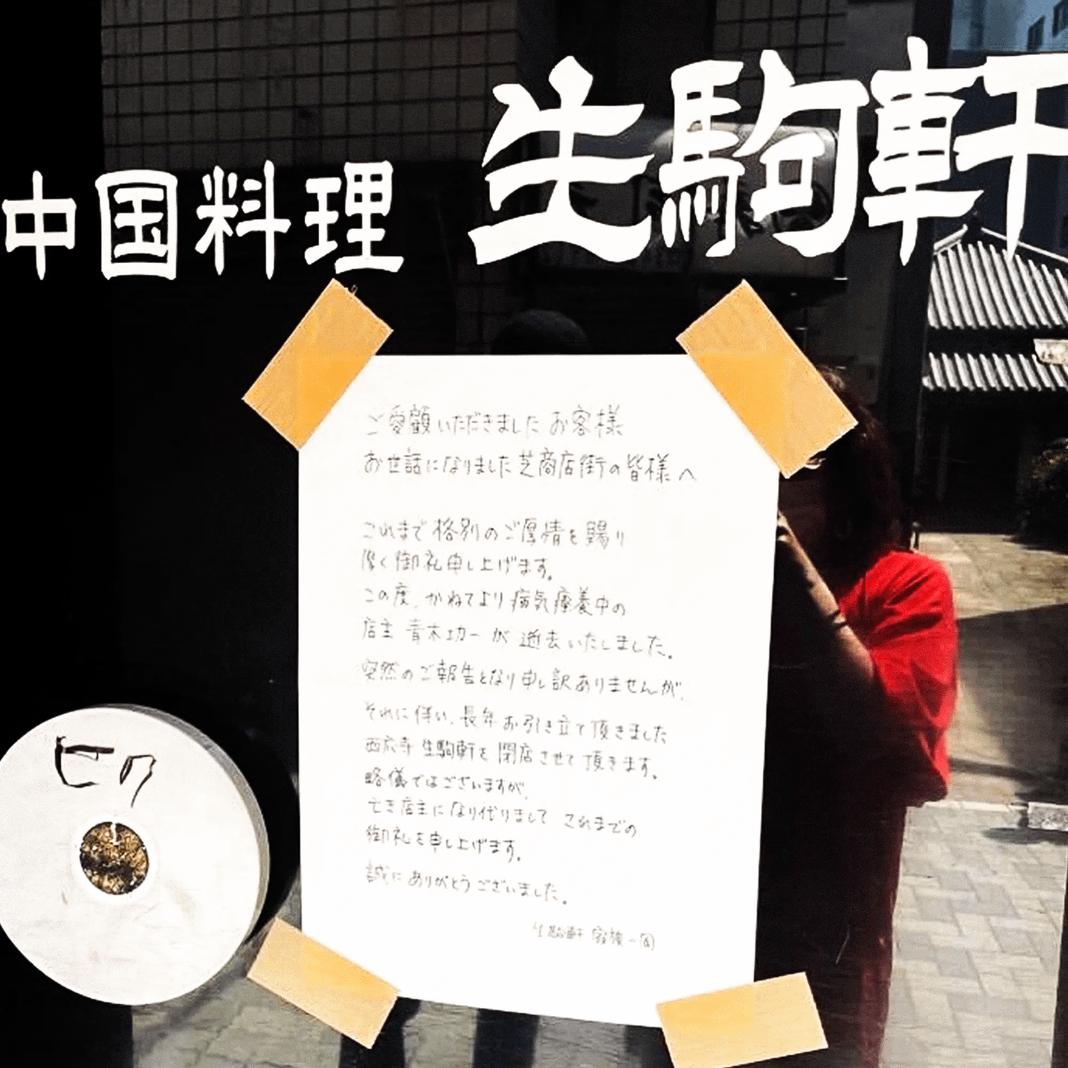 中国料理 生駒軒
ご愛顧いただきました お客様
お世話になりました 芝商店街の皆様へ
これまで 格別の ご厚情を 賜り
厚く 御礼申し上げます。
この度、かねてより 病気療養中の
店主 青木功一 が 逝去いたしました。
突然のご報告となり申し訳ありませんが、
それに伴い、長年 お引き立て頂きました
西応寺 生駒軒を 閉店させて頂きます。
略儀ではございますが、
亡き店主になり代りまして これまでの
御礼を申し上げます。
誠に ありがとうございました。
生駒軒 家族一同
ヒク